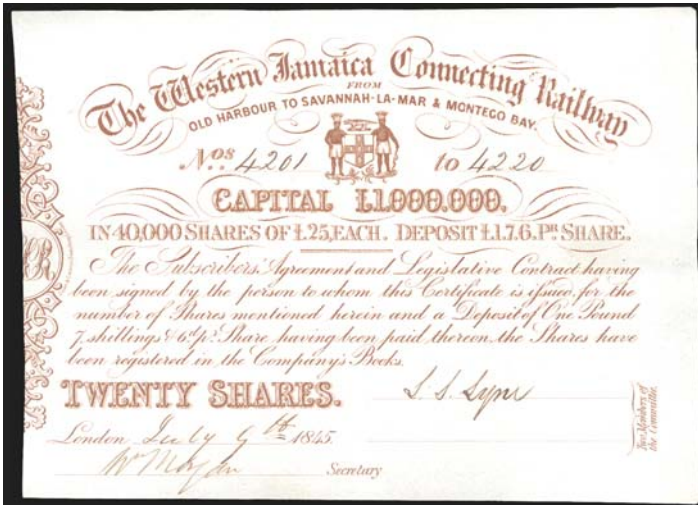 The Western Jamaica Connecting Railway
FROM
OLD HARBOUR TO SAVANNAH-LA-MAR & MONTEGO BAY.
Nos. 4201 to 4220
CAPITAL £1000.000.
IN 40,000 SHARES OF £25, EACH. DEPOSIT £1.7.6. PR. SHARE.
The Subscribers' Agreement and Legislative Contract having
been signed by the person to whom this Certificate is issued, for the
number of Shares mentioned herein and a Deposit of One Pound
7 shillings & 6d pr. Share, having been paid thereon, the Shares have
been registered in the Company's Books.
TWENTY SHARES.
London July 9th 1845.
Wm Morgan Secretary
Two Members of
the Committee.